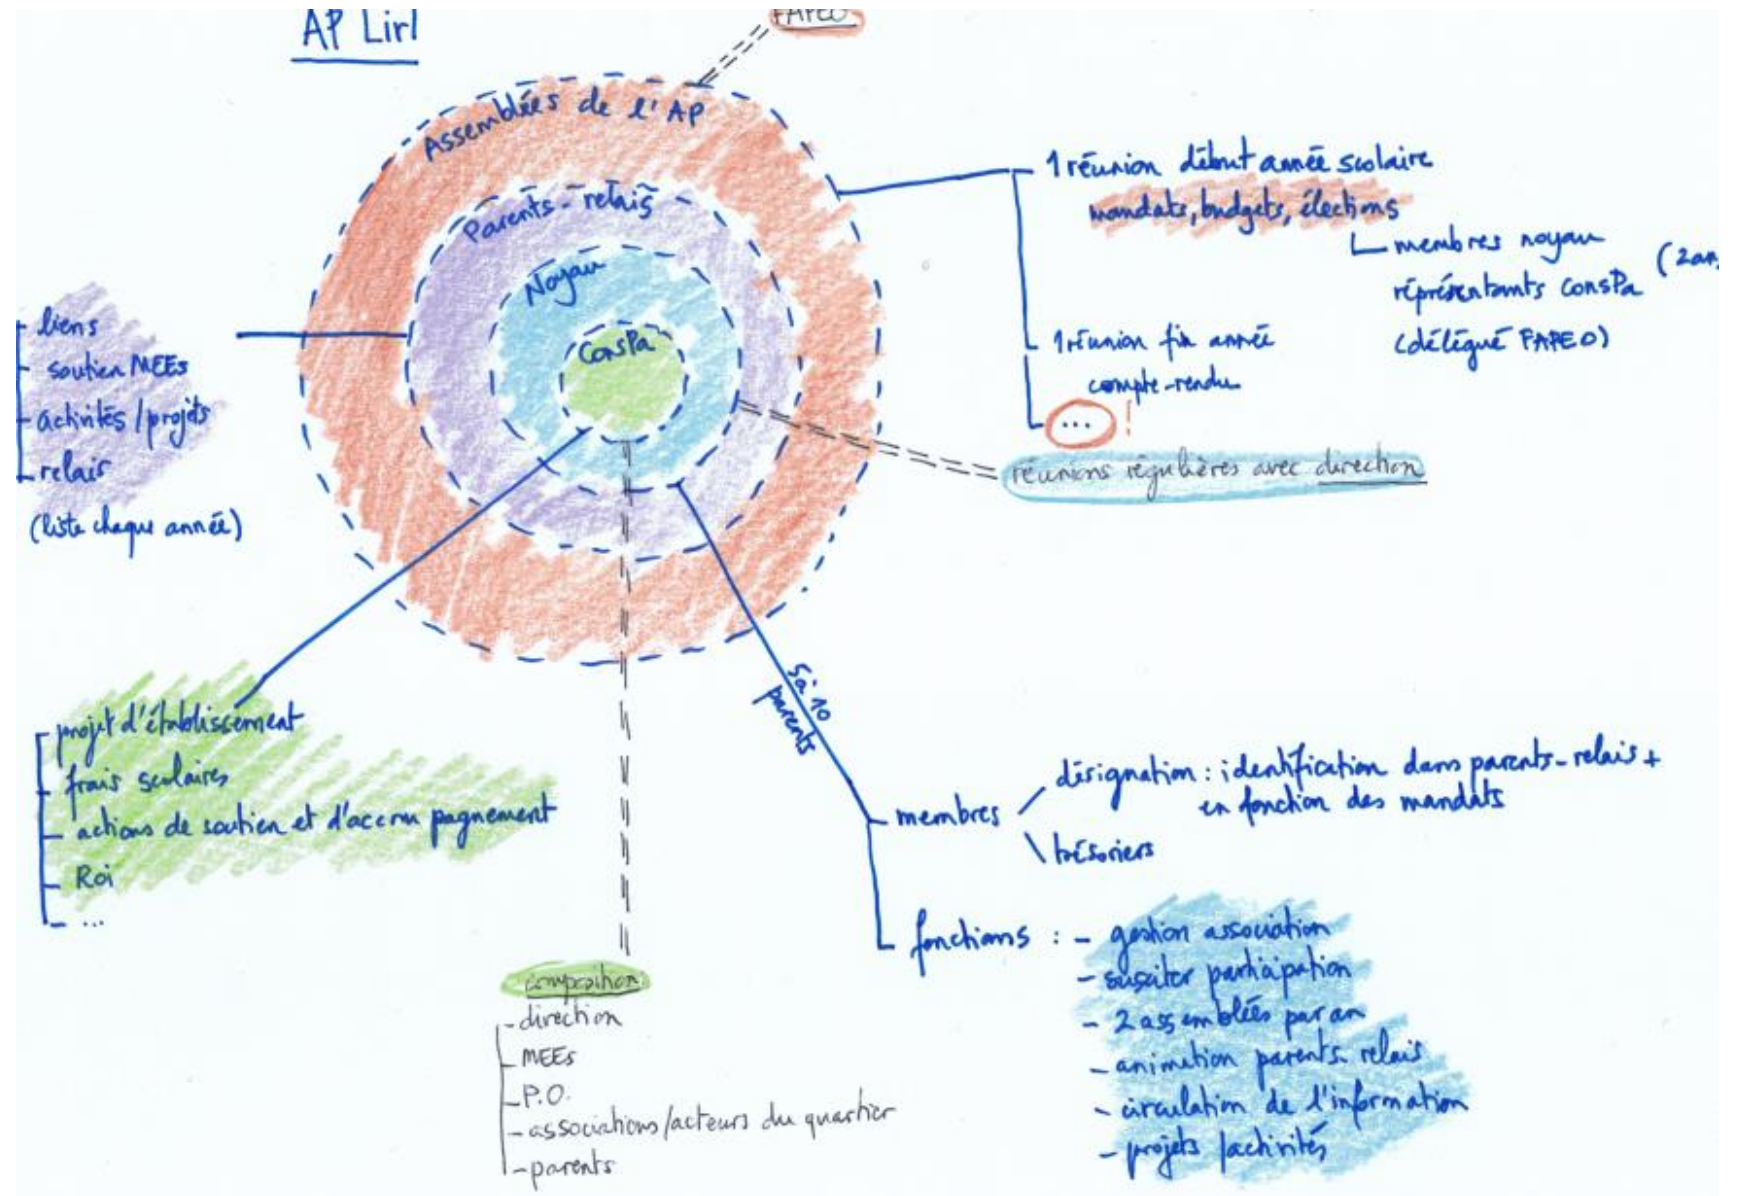 AP Lirl
FAPEO
Assemblées de l'AP
Parents-relais
Noyau
ConsPa
1 réunion début année scolaire
mandats, budgets, élections
membres noyau
réprésentants ConsPa
(2an
(délégué FAPEO)
1 réunion fin année
compte-rendu
... !
réunions régulières avec direction
liens
soutien MEEs
activités/projets
relais
(liste chaque année)
projet d'établissement
frais scolaires
actions de soutien et d'accompagnement
Roi
...
5 à 10
parents
membres
désignation : identification dans parents-relais +
en fonction des mandats
trésoriers
fonctions : - gestion association
- susciter participation
- 2 assemblées par an
- animation parents-relais
- circulation de l'information
- projets/activités
composition
- direction
- MEEs
- P.O.
- associations/acteurs du quartier
- parents